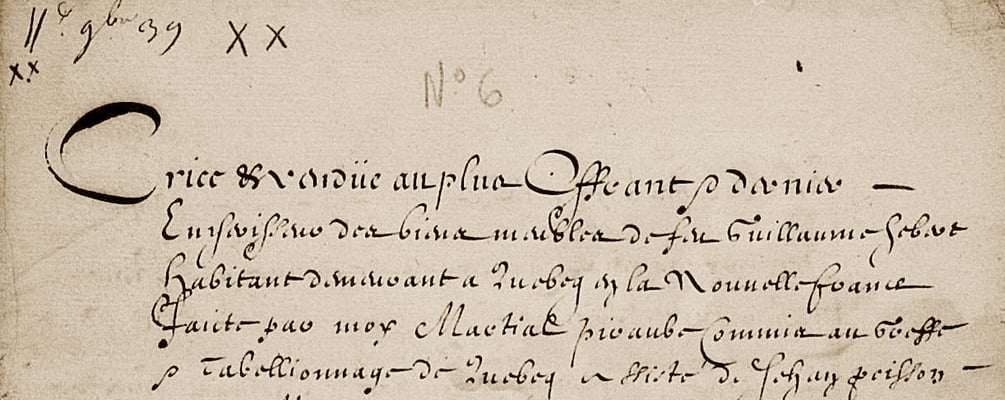 11e 9bre 39 XX
xx
No 6
Criee & vendüe au plus Offrant & dernier
Encherisseur des biens meubles de feu Guillaume hebert
habitant demeurant a Quebecq en la Nouvelle france
Faicte par moy Martial piraube Commis au Greffe
& Tabellionnage de Quebecq assisté de Jehan poisson